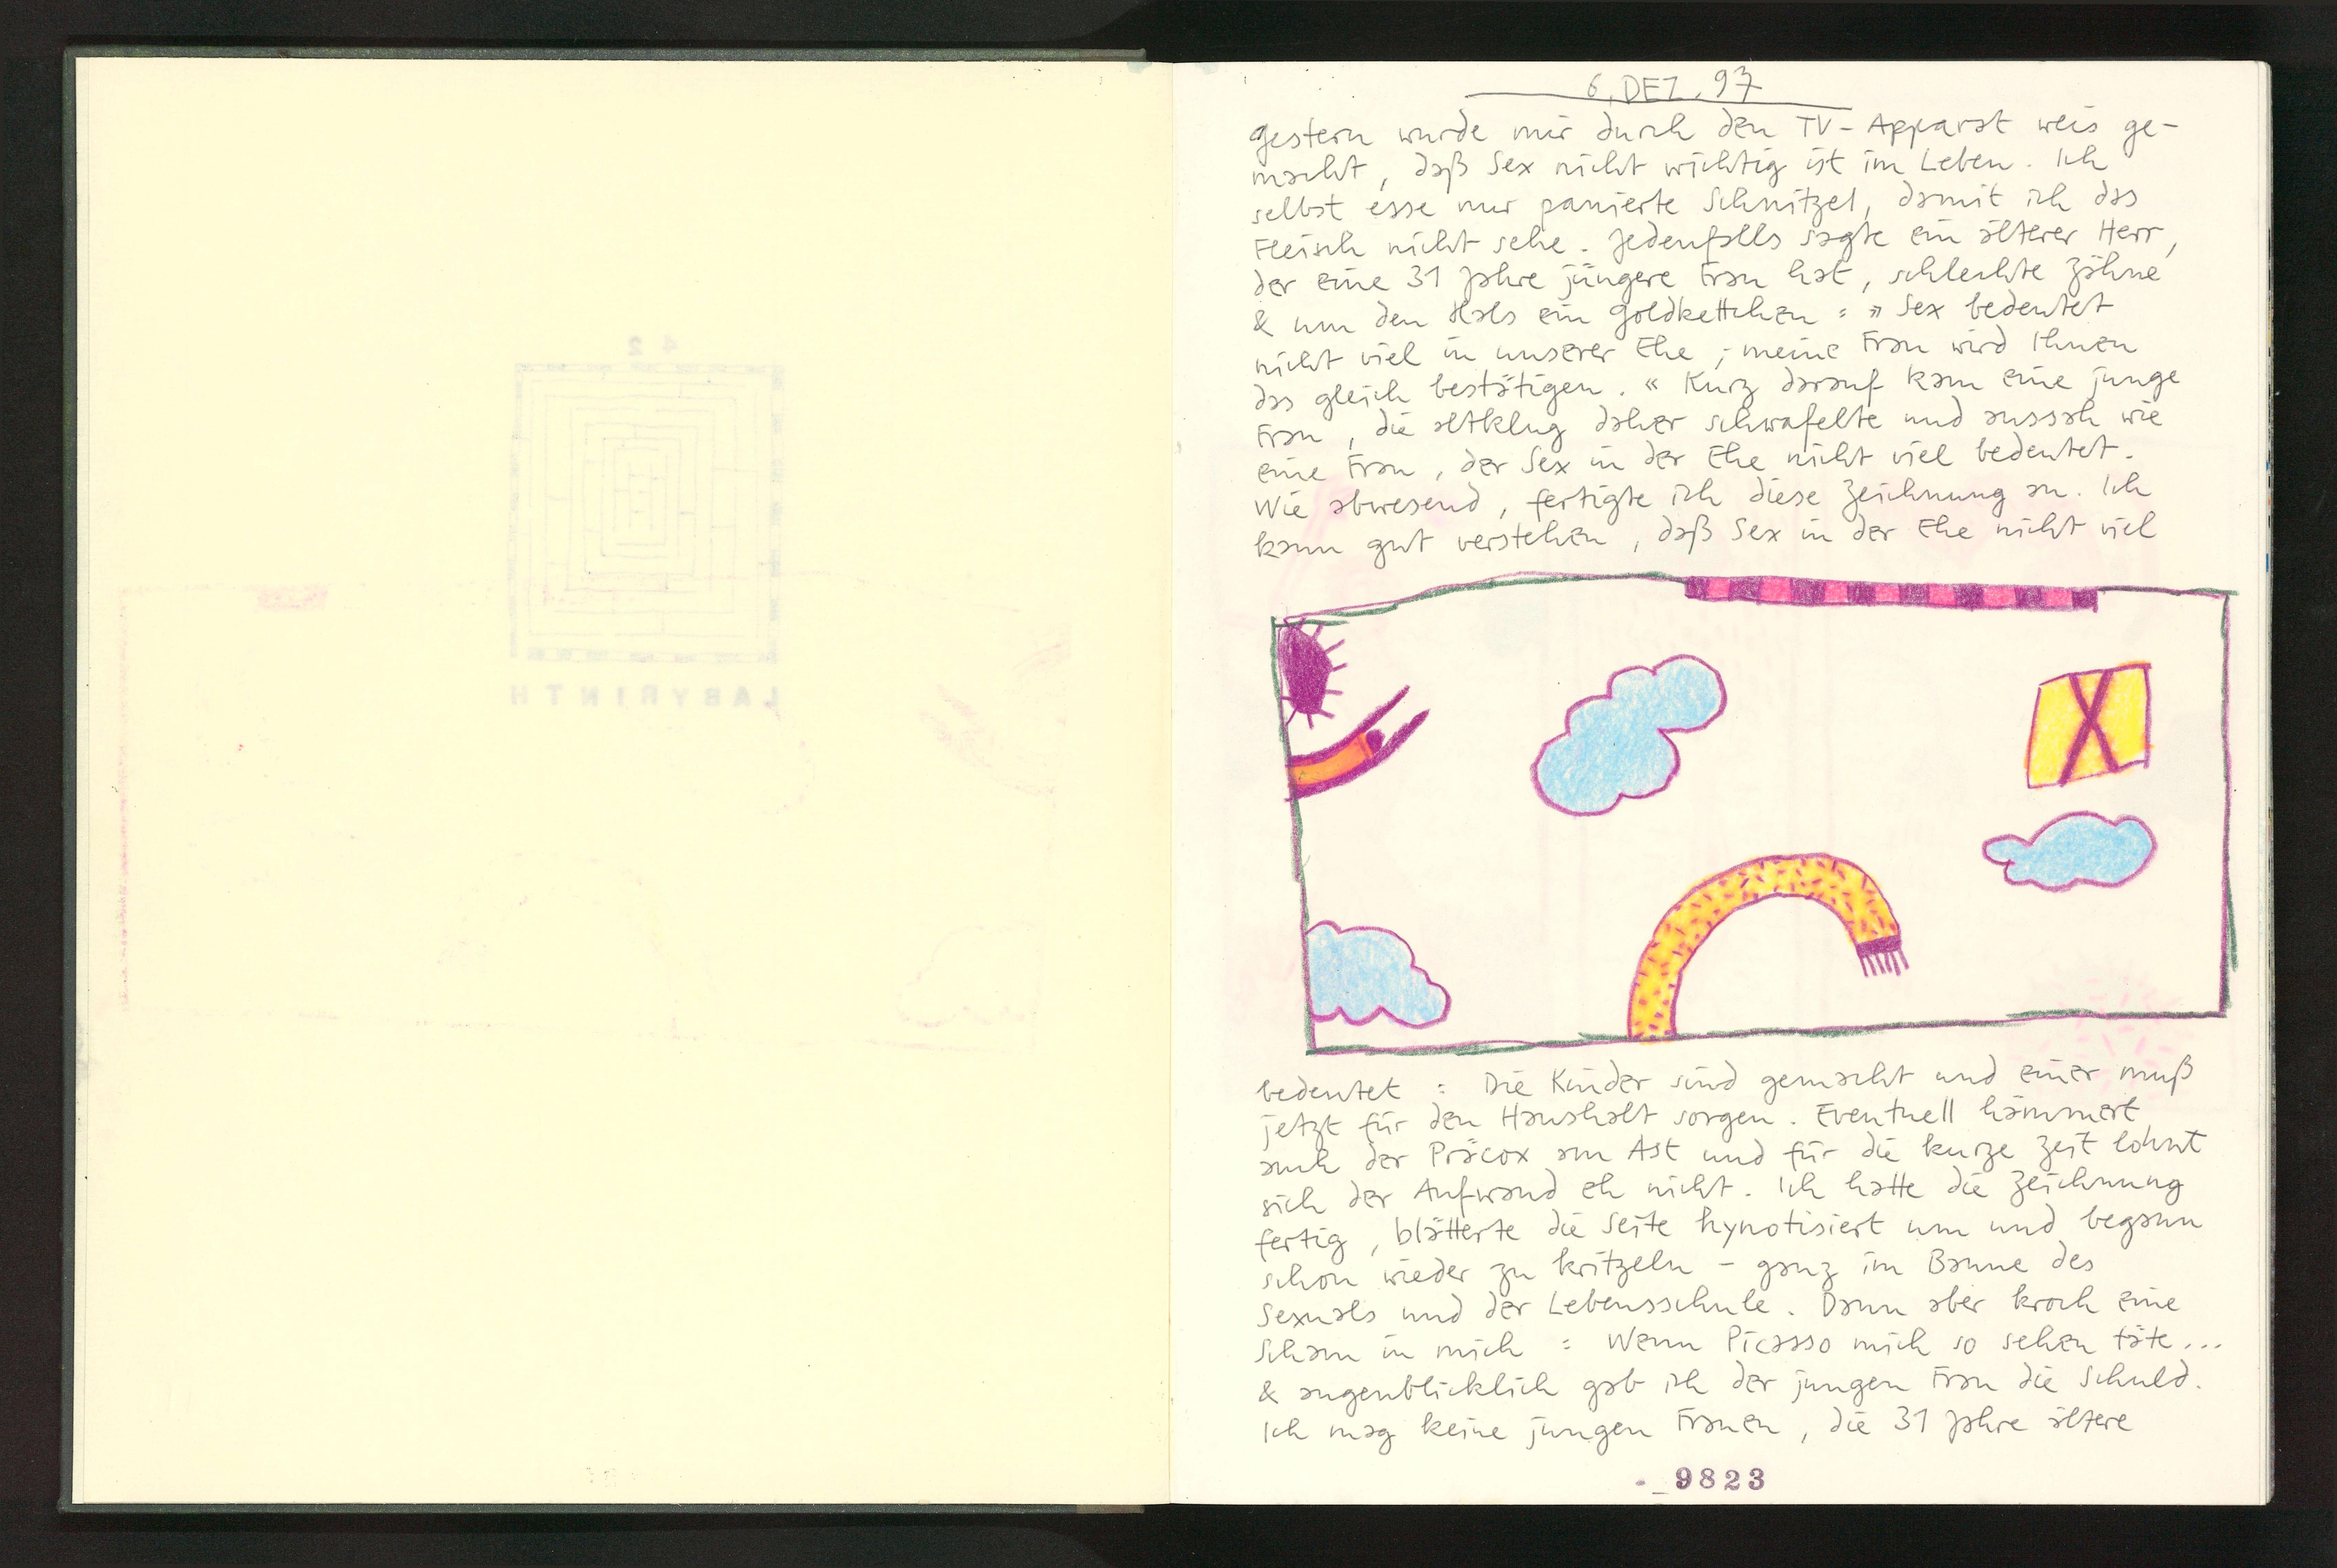 42
LABYRINTH
6. DEZ. 97
gestern wurde mir durch den TV-Apparat weis ge-
macht, daß Sex nicht wichtig ist im Leben. Ich
selbst esse nur panierte Schnitzel, damit ich das
Fleisch nicht sehe. Jedenfalls sagte ein älterer Herr,
der eine 31 Jahre jüngere Frau hat, schlechte Zähne
& um den Hals ein Goldkettchen : » Sex bedeutet
nicht viel in unserer Ehe ; meine Frau wird Ihnen
das gleich bestätigen. « Kurz darauf kam eine junge
Frau, die altklug daher schwafelte und aussah wie
eine Frau, der Sex in der Ehe nicht viel bedeutet.
Wie abwesend, fertigte ich diese Zeichnung an. Ich
kann gut verstehen, daß Sex in der Ehe nicht viel
bedeutet : Die Kinder sind gemacht und einer muß
jetzt für den Haushalt sorgen. Eventuell hämmert
auch der Präcox am Ast und für die kurze Zeit lohnt
sich der Aufwand eh nicht. Ich hatte die Zeichnung
fertig, blätterte die Seite hynotisiert um und begann
schon wieder zu kritzeln - ganz im Banne des
Sexuals und der Lebensschule. Dann aber kroch eine
Scham in mich : Wenn Picasso mich so sehen täte...
& augenblicklich gab ich der jungen Frau die Schuld.
Ich mag keine jungen Frauen, die 31 Jahre ältere
9823